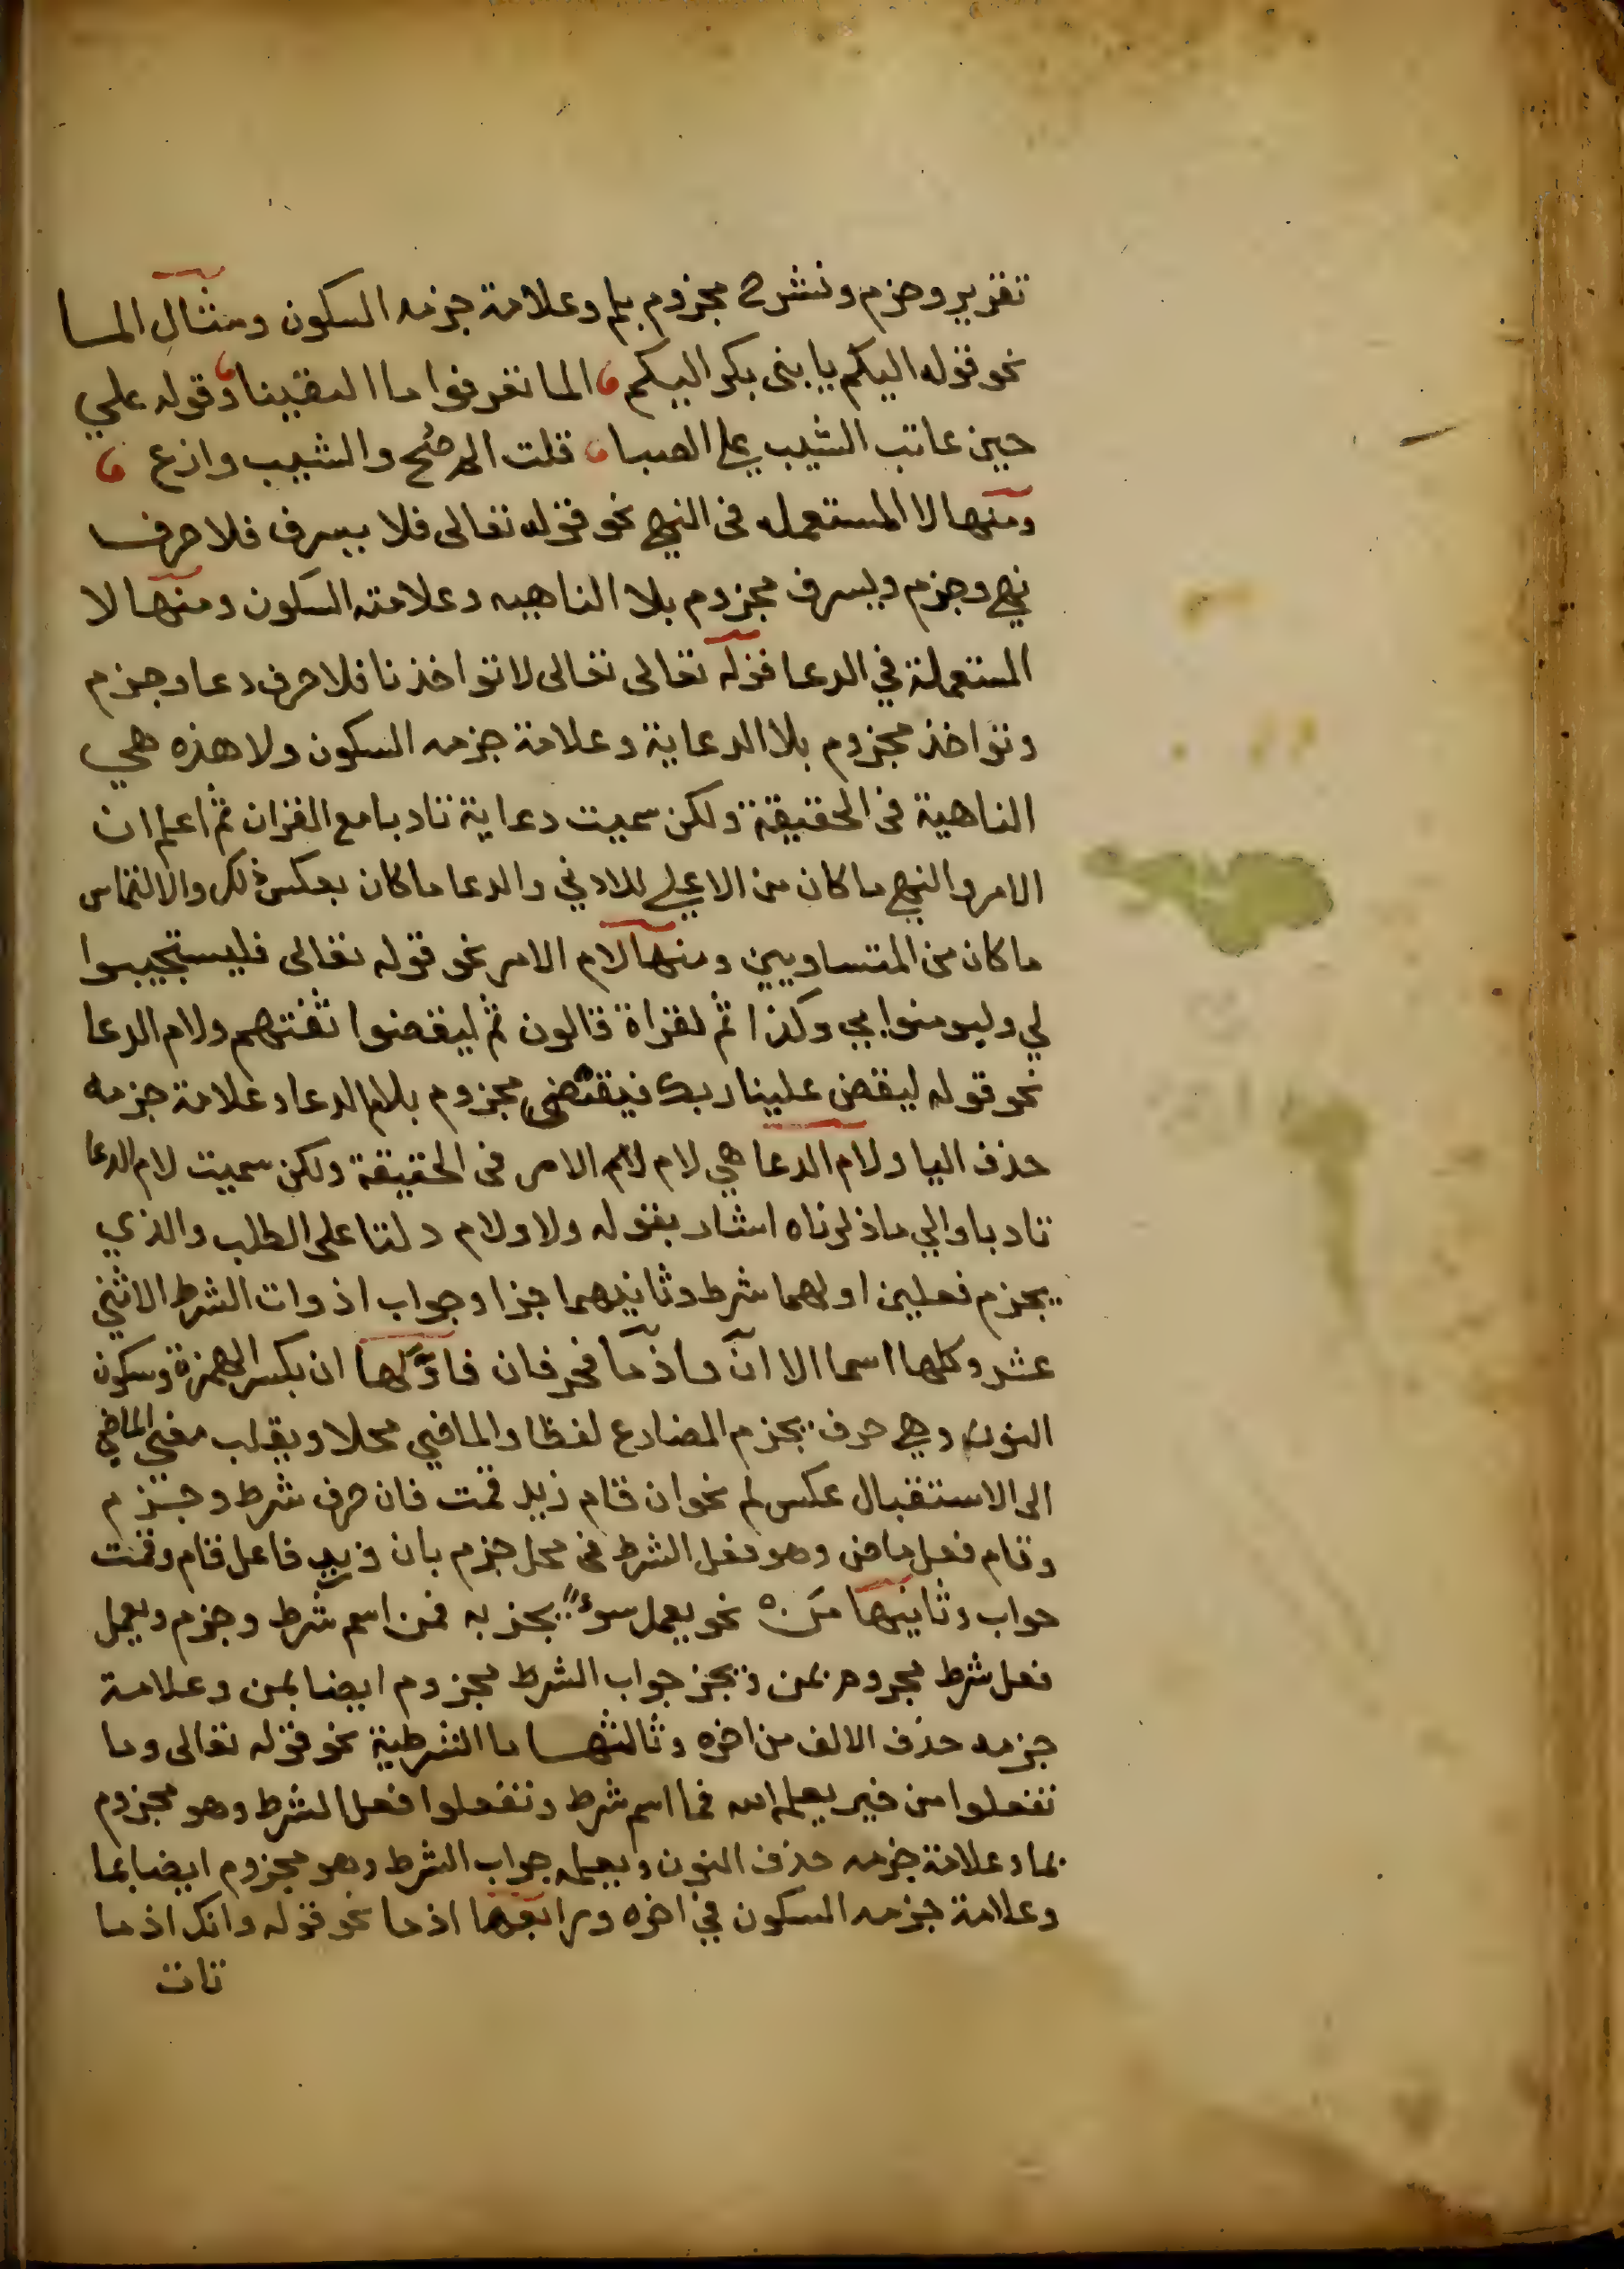 تقرير وجزم ونشرح مجزوم بلم وعلامة جزمه السكون ومثال الما
نحو قوله اليكم يا بنى بكر اليكم الما تعرفوا ما اليقينا وقوله علي
حين عاتب الشيب على الصبا قلت الم اصح والشيب وازع
ومنها لا المستعمله فى النهي نحو قوله تعالى فلا يسرف فلا حرف
نهي وجزم ويسرف مجزوم بلا الناهيه وعلامته السكون ومنها لا
المستعملة في الدعا قوله تعالى تعالى لا تواخذنا فلا حرف دعا وجزم
وتواخذ مجزوم بلا الدعاية وعلامة جزمه السكون ولا هذه هي
الناهية فى الحقيقة ولكن سميت دعاية تادبا مع القران ثم اعلم ان
الامر والنهي ما كان من الاعلي للادني والدعا ما كان بعكس ذلك والالتماس
ما كان من المتساويين ومنها لام الامر نحو قوله تعالى فليستجيبوا
لي وليومنوا بي وكذا ثم لقراة قالون ثم ليقضوا تفثهم ولام الدعا
نحو قوله ليقض علينا ربك فيقتضى مجزوم بلام الدعا وعلامة جزمه
حذف اليا ولام الدعا هي لام لام الامر فى الحقيقة ولكن سميت لام الدعا
تادبا والي ما ذكرناه اشار بقوله ولا ولام دلتا على الطلب والذي
يجزم فعلين اولهما شرط وثانيهما جزا وجواب اذوات الشرط الاثني
عشر وكلها اسما الا ان واذ ما فحرفان فاولها ان بكسر الهمزة وسكون
النون وهي حرف يجزم المضارع لفظا والماضي محلا ويقلب معني الماضي
الى الاستقبال عكس لم نحو ان قام زيد قمت فان حرف شرط وجزم
وقام فعل ماض وهو فعل الشرط فى محل جزم بان وزيد فاعل قام وقمت
جواب وثانيها من نحو يعمل سوءً يجز به فمن اسم شرط وجزم ويعمل
فعل شرط مجروم بمن ويجز جواب الشرط مجزوم ايضا بمن وعلامة
جزمه حذف الالف من اخره وثالثها ما الشرطية نحو قوله تعالى وما
تفعلوا من خير يعلمه الله فما اسم شرط وتفعلوا فعل الشرط وهو مجزوم
بما وعلامة جزمه حذف النون ويعمله جواب الشرط وهو مجزوم ايضا بما
وعلامة جزمه السكون في اخره ورابعها اذ ما نحو قوله وانك اذ ما
تات